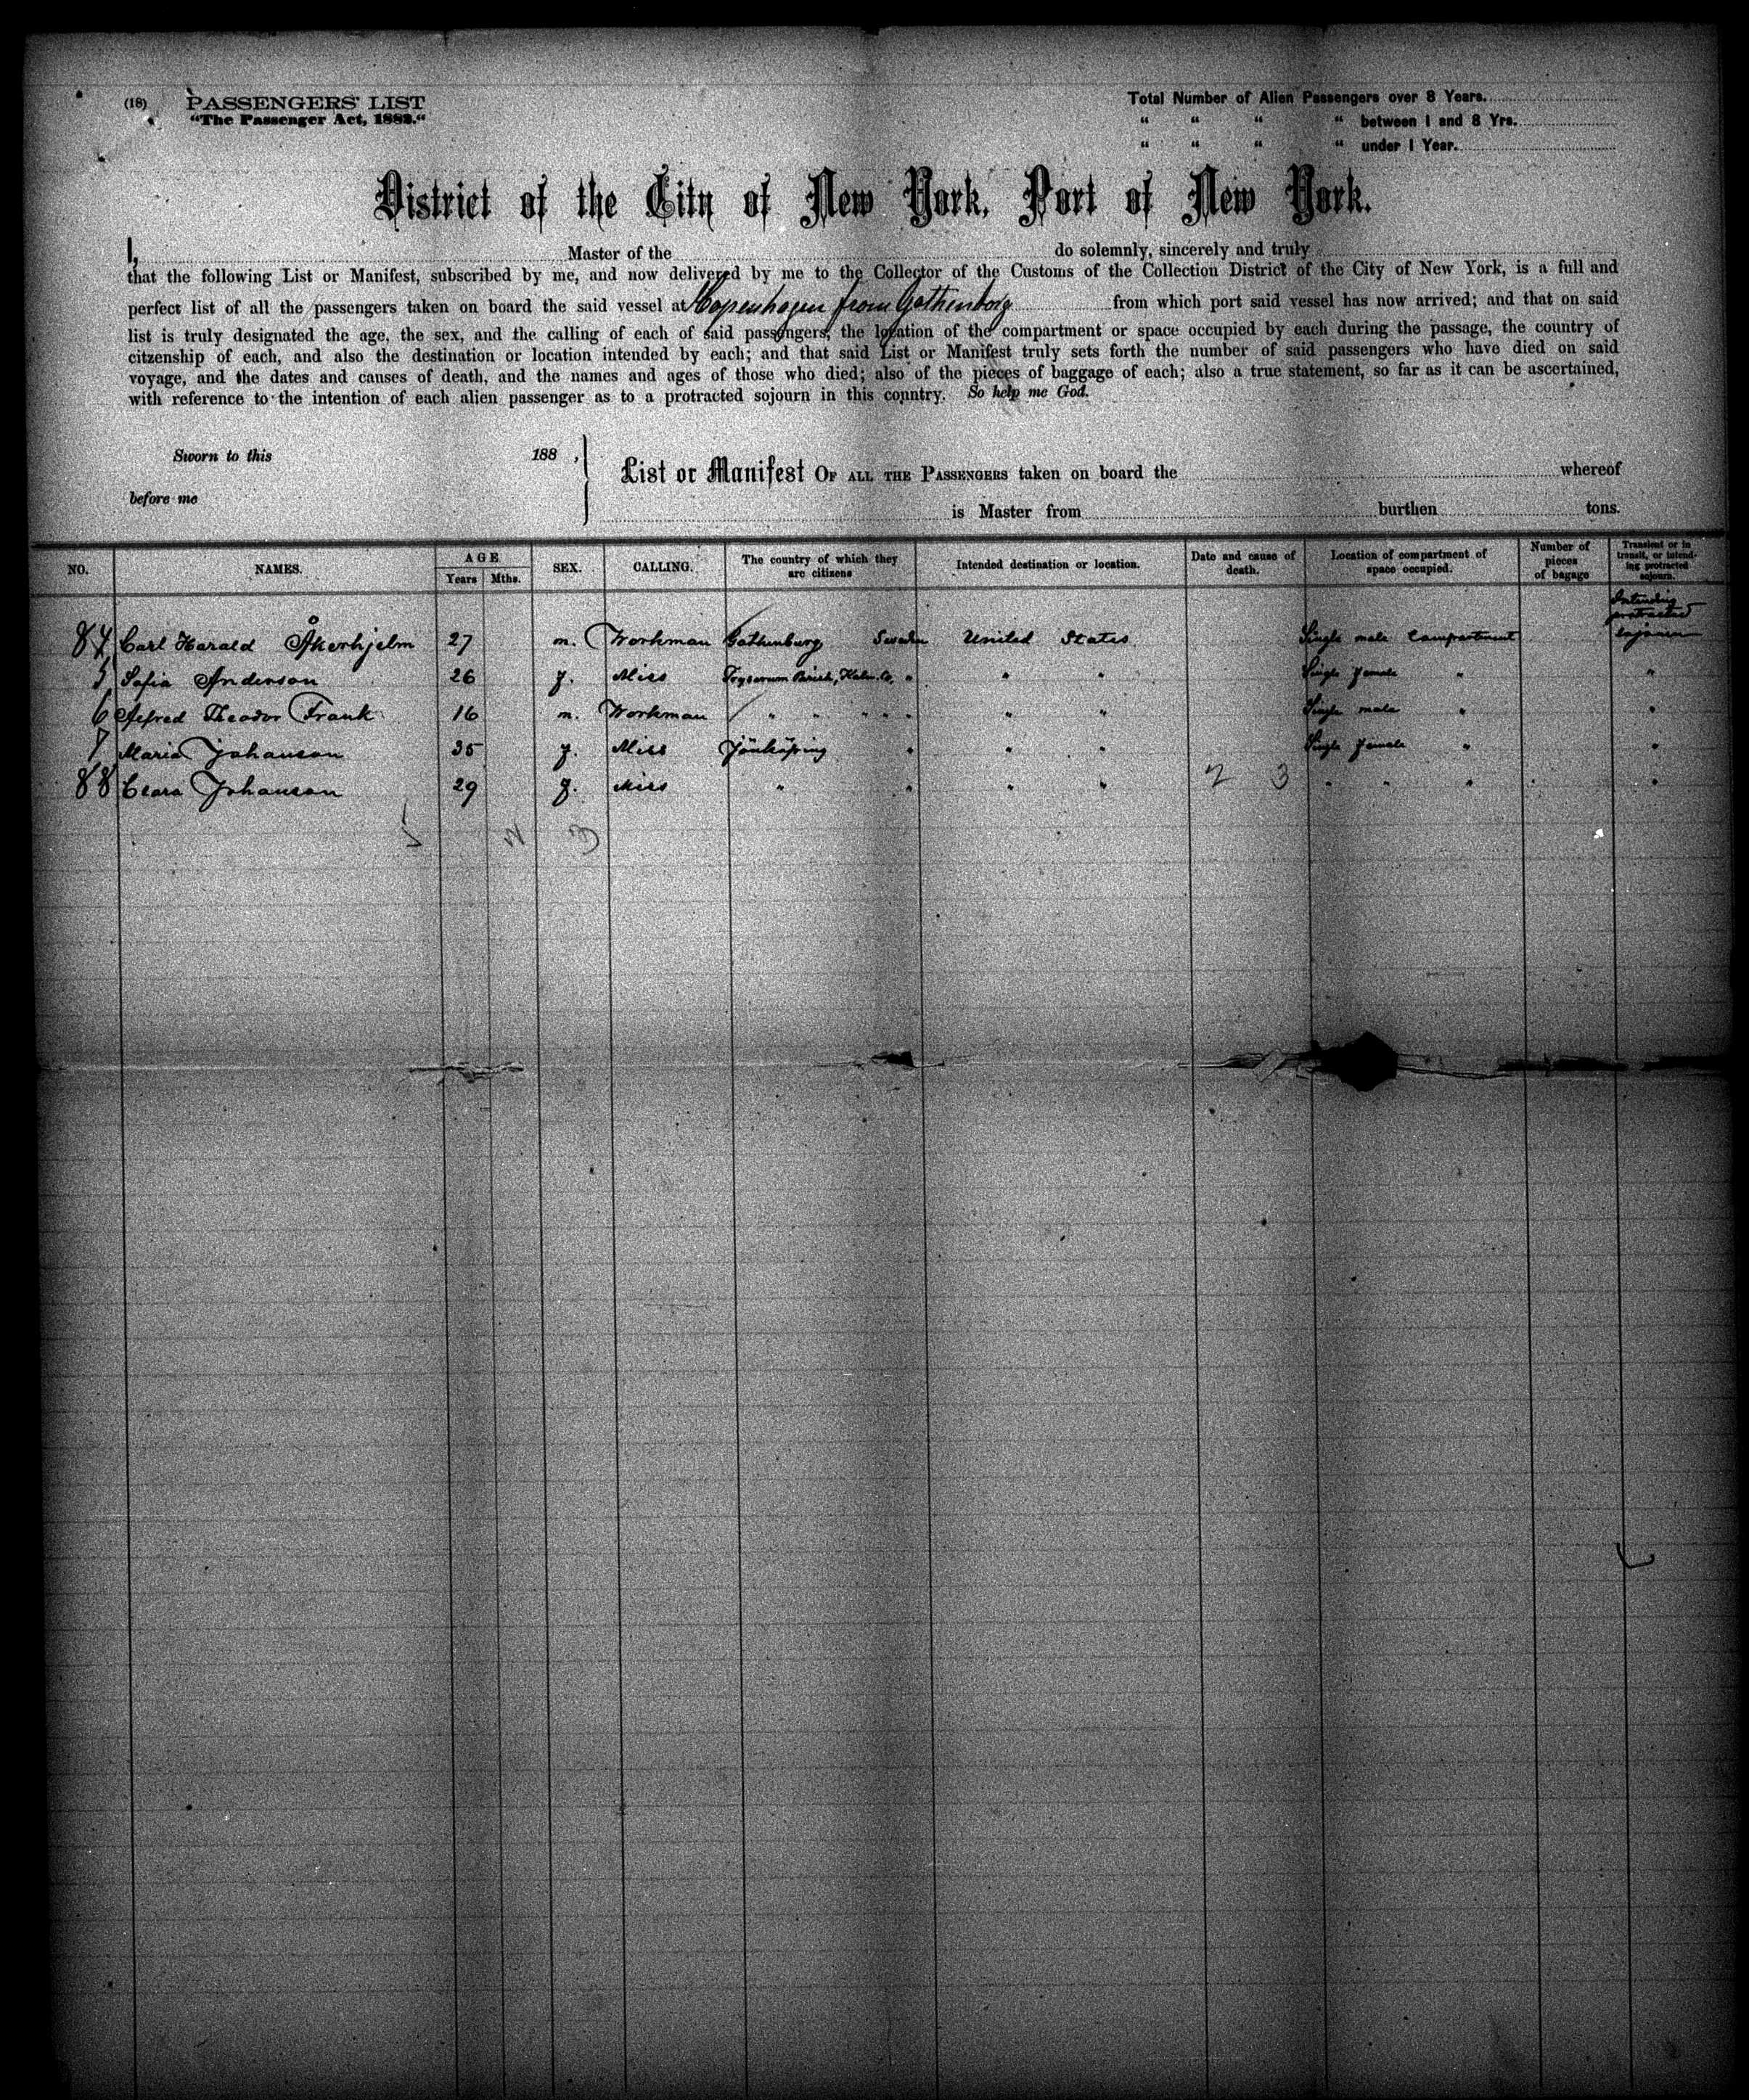 (18) PASSENGERS' LIST
"The Passenger Act, 1882."
Total Number of Alien Passengers over 8 Years.
" " " " between 1 and 8 Yrs.
" " " " under 1 Year.
District of the City of New York, Port of New York.
I, Master of the do solemnly, sincerely and truly
that the following List or Manifest, subscribed by me, and now delivered by me to the Collector of the Customs of the Collection District of the City of New York, is a full and
perfect list of all the passengers taken on board the said vessel at Copenhagen from Gothenborg from which port said vessel has now arrived; and that on said
list is truly designated the age, the sex, and the calling of each of said passengers, the location of the compartment or space occupied by each during the passage, the country of
citzenship of each, and also the destination or location intended by each; and that said List or Manifest truly sets forth the number of said passengers who have died on said
voyage, and the dates and causes of death, and the names and ages of those who died; also of the pieces of baggage of each; also a true statement, so far as it can be ascertained,
with reference to the intention of each alien passenger as to a protracted sojourn in this country. So help me God.
Sworn to this 188 ,
before me
List or Manifest OF ALL THE PASSENGERS taken on board the whereof
is Master from burthen tons.
NO. NAMES. AGE Years Mths. SEX. CALLING. The country of which they are citizens Intended destination or location. Date and cause of death. Location of compartment of space occupied. Number of pieces of bagage Transient or in transit, or intending protracted sojourn.
84 Carl Harald Åkerhjelm 27 m. Workman Gothenburg Sweden United States Single male Compartment Intending protracted sojourn
5 Sofia Anderson 26 f. Miss " " " Single female " "
6 Alfred Theodor Frank 16 m. Workman " " " " " " Single male " "
7 Maria Johanson 35 f. Miss Jönköping " " " Single female " "
88 Clara Johanson 29 f. Miss " " " " 2 3 " " " "
5 2 3